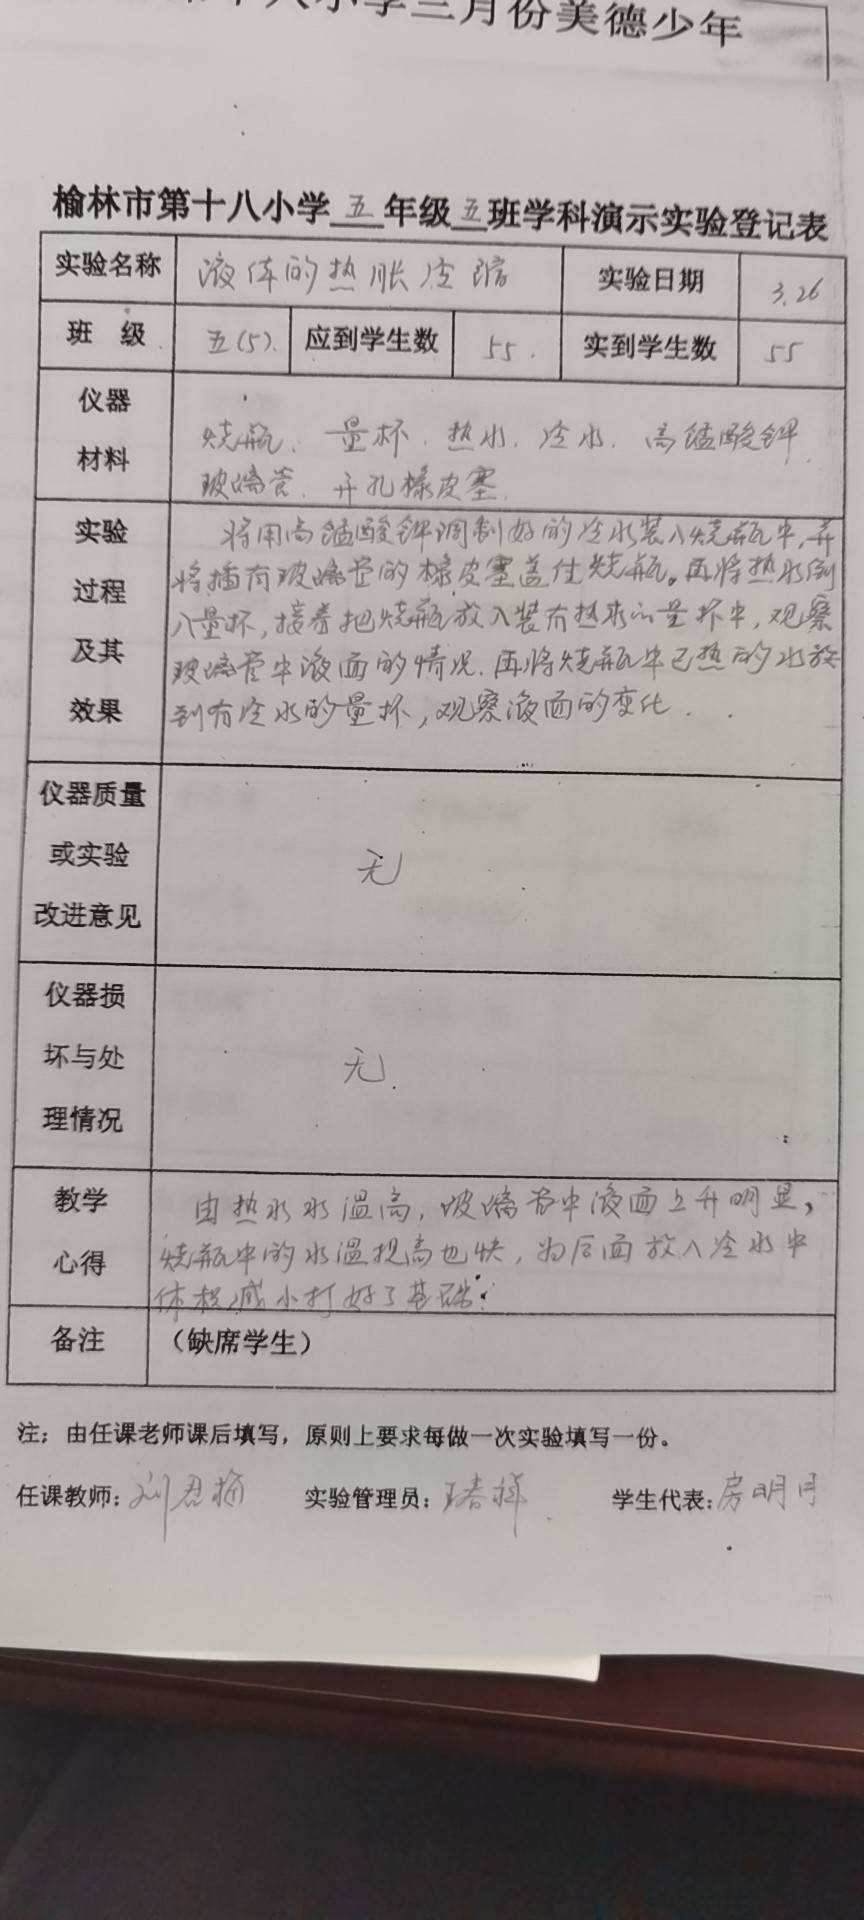 十八小学三月份美德少年
榆林市第十八小学五年级五班学科演示实验登记表
实验名称 液体的热胀冷缩 实验日期 3.26
班 级 五(5). 应到学生数 55. 实到学生数 55
仪器
材料
烧瓶、量杯、热水、冷水、高锰酸钾、
玻璃管、开孔橡皮塞.
实验
过程
及其
效果
将用高锰酸钾调制好的冷水装入烧瓶中,并
将插有玻璃管的橡皮塞盖住烧瓶。再将热水倒
入量杯,接着把烧瓶放入装有热水的量杯中,观察
玻璃管中液面的情况.再将烧瓶中已热的水放
到有冷水的量杯,观察液面的变化.
仪器质量
或实验
改进意见
无
仪器损
坏与处
理情况
无.
教学
心得
由热水水温高,玻璃管中液面上升明显,
烧瓶中的水温提高也快,为后面放入冷水中
体积减小打好了基础.
备注 （缺席学生）
注；由任课老师课后填写，原则上要求每做一次实验填写一份。
任课教师: 实验管理员： 学生代表:房明月